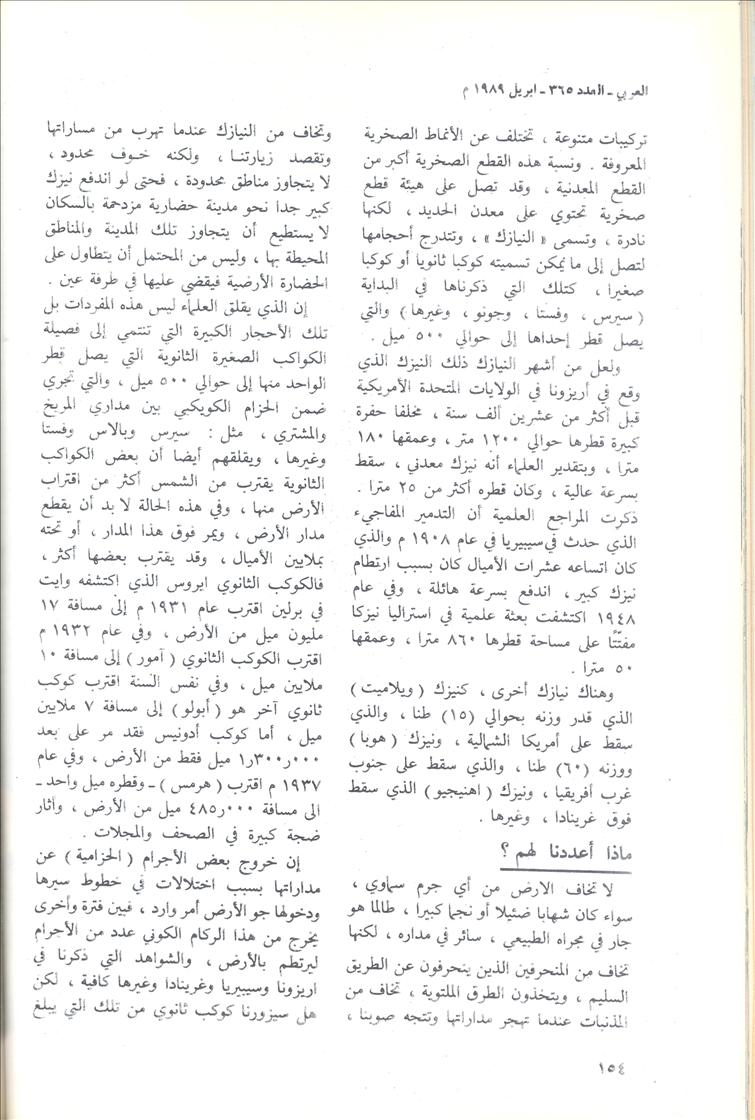 العربي - العدد ٣٦٥ - ابريل ١٩٨٩ م
تركيبات متنوعة ، تختلف عن الأنماط الصخرية
المعروفة . ونسبة هذه القطع الصخرية أكبر من
القطع المعدنية ، وقد تصل على هيئة قطع
صخرية تحتوي على معدن الحديد ، لكنها
نادرة ، وتسمى « النيازك » ، وتتدرج أحجامها
لتصل إلى ما يمكن تسميته كوكبا ثانويا أو كوكبا
صغيرا ، كتلك التي ذكرناها في البداية
( سيرس ، وفستا ، وجونو ، وغيرها ) والتي
يصل قطر إحداها إلى حوالي ٥٠٠ ميل .
ولعل من أشهر النيازك ذلك النيزك الذي
وقع في أريزونا في الولايات المتحدة الأمريكية
قبل أكثر من عشرين ألف سنة ، مخلفا حفرة
كبيرة قطرها حوالي ١٢٠٠ متر ، وعمقها ١٨٠
مترا ، وبتقدير العلماء أنه نيزك معدني ، سقط
بسرعة عالية ، وكان قطره أكثر من ٢٥ مترا .
ذكرت المراجع العلمية أن التدمير المفاجيء
الذي حدث في سيبيريا في عام ١٩٠٨ م والذي
كان اتساعه عشرات الأميال كان بسبب ارتطام
نيزك كبير ، اندفع بسرعة هائلة ، وفي عام
١٩٤٨ اكتشفت بعثة علمية في استراليا نيزكا
مفتّتا على مساحة قطرها ٨٦٠ مترا ، وعمقها
٥٠ مترا .
وهناك نيازك أخرى ، كنيزك ( ويلاميت )
الذي قدر وزنه بحوالي (١٥) طنا ، والذي
سقط على أمريكا الشمالية ، ونيزك ( هوبا )
ووزنه (٦٠) طنا ، والذي سقط على جنوب
غرب أفريقيا ، ونيزك ( اهنيجيو ) الذي سقط
فوق غرينادا ، وغيرها .
ماذا أعددنا لهم ؟
لا تخاف الارض من أي جرم سماوي ،
سواء كان شهابا ضئيلا أو نجما كبيرا ، طالما هو
جار في مجراه الطبيعي ، سائر في مداره ، لكنها
تخاف من المنحرفين الذين ينحرفون عن الطريق
السليم ، ويتخذون الطرق الملتوية ، تخاف من
المذنبات عندما تهجر مداراتها وتتجه صوبنا ،
وتخاف من النيازك عندما تهرب من مساراتها
وتقصد زيارتنا ، ولكنه خوف محدود ،
لا يتجاوز مناطق محدودة ، فحتى لو اندفع نيزك
كبير جدا نحو مدينة حضارية مزدحمة بالسكان
لا يستطيع أن يتجاوز تلك المدينة والمناطق
المحيطة بها ، وليس من المحتمل أن يتطاول على
الحضارة الأرضية فيقضي عليها في طرفة عين .
إن الذي يقلق العلماء ليس هذه المفردات بل
تلك الأحجار الكبيرة التي تنتمي إلى فصيلة
الكواكب الصغيرة الثانوية التي يصل قطر
الواحد منها إلى حوالي ٥٠٠ ميل ، والتي تجري
ضمن الحزام الكويكبي بين مداري المريخ
والمشتري ، مثل : سيرس وبالاس وفستا
وغيرها ، ويقلقهم أيضا أن بعض الكواكب
الثانوية يقترب من الشمس أكثر من اقتراب
الأرض منها ، وفي هذه الحالة لا بد أن يقطع
مدار الأرض ، ويمر فوق هذا المدار ، أو تحته
بملايين الأميال ، وقد يقترب بعضها أكثر ،
فالكوكب الثانوي ايروس الذي اكتشفه وايت
في برلين اقترب عام ١٩٣١ م إلى مسافة ١٧
مليون ميل من الأرض ، وفي عام ١٩٣٢ م
اقترب الكوكب الثانوي ( آمور ) إلى مسافة ١٠
ملايين ميل ، وفي نفس السنة اقترب كوكب
ثانوي آخر هو ( أبولو ) إلى مسافة ٧ ملايين
ميل ، أما كوكب أدونيس فقد مر على بعد
١٫٣٠٠٫٠٠٠ ميل فقط من الأرض ، وفي عام
١٩٣٧ م اقترب ( هرمس ) - وقطره ميل واحد -
الى مسافة ٤٨٥٫٠٠٠ ميل من الأرض ، وأثار
ضجة كبيرة في الصحف والمجلات .
إن خروج بعض الأجرام ( الحزامية ) عن
مداراتها بسبب اختلالات في خطوط سيرها
ودخولها جو الأرض أمر وارد ، فبين فترة وأخرى
يخرج من هذا الركام الكوني عدد من الأجرام
ليرتطم بالأرض ، والشواهد التي ذكرنا في
اريزونا وسيبيريا وغرينادا وغيرها كافية ، لكن
هل سيزورنا كوكب ثانوي من تلك التي يبلغ
١٥٤